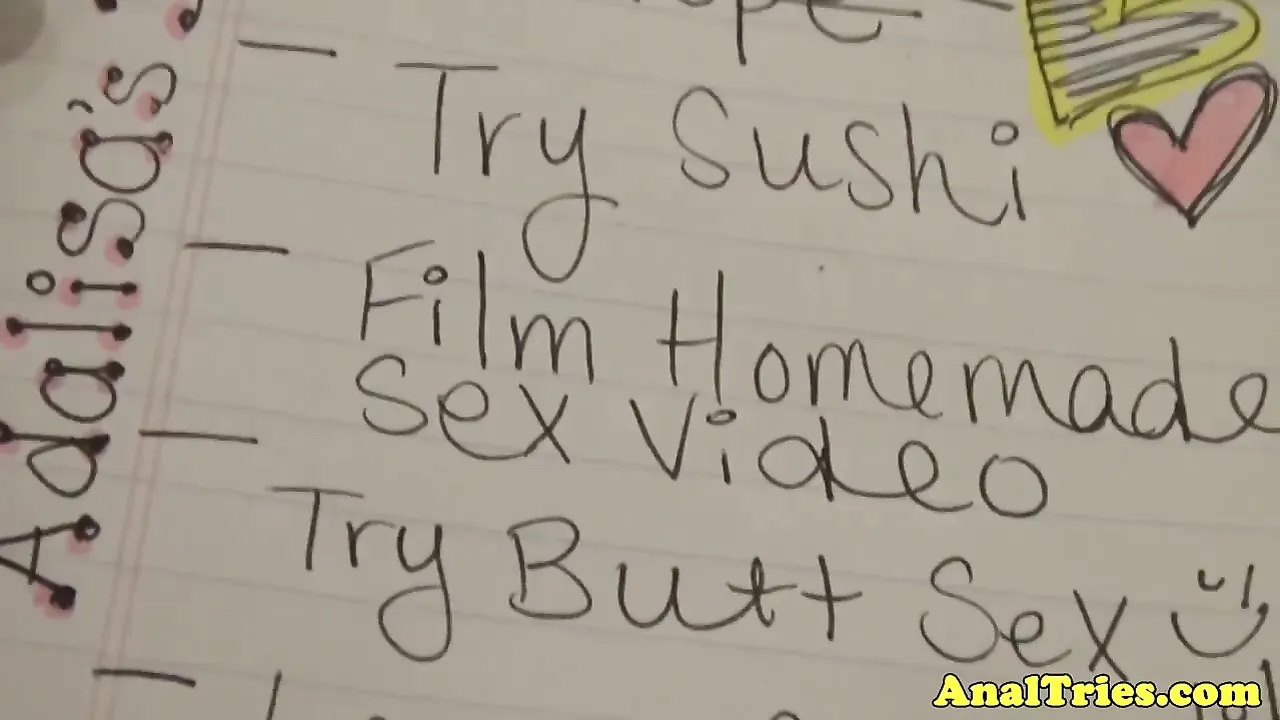 Adalisa's
- Try Sushi
- Film Homemade
Sex Video
- Try Butt Sex
AnalTries.com